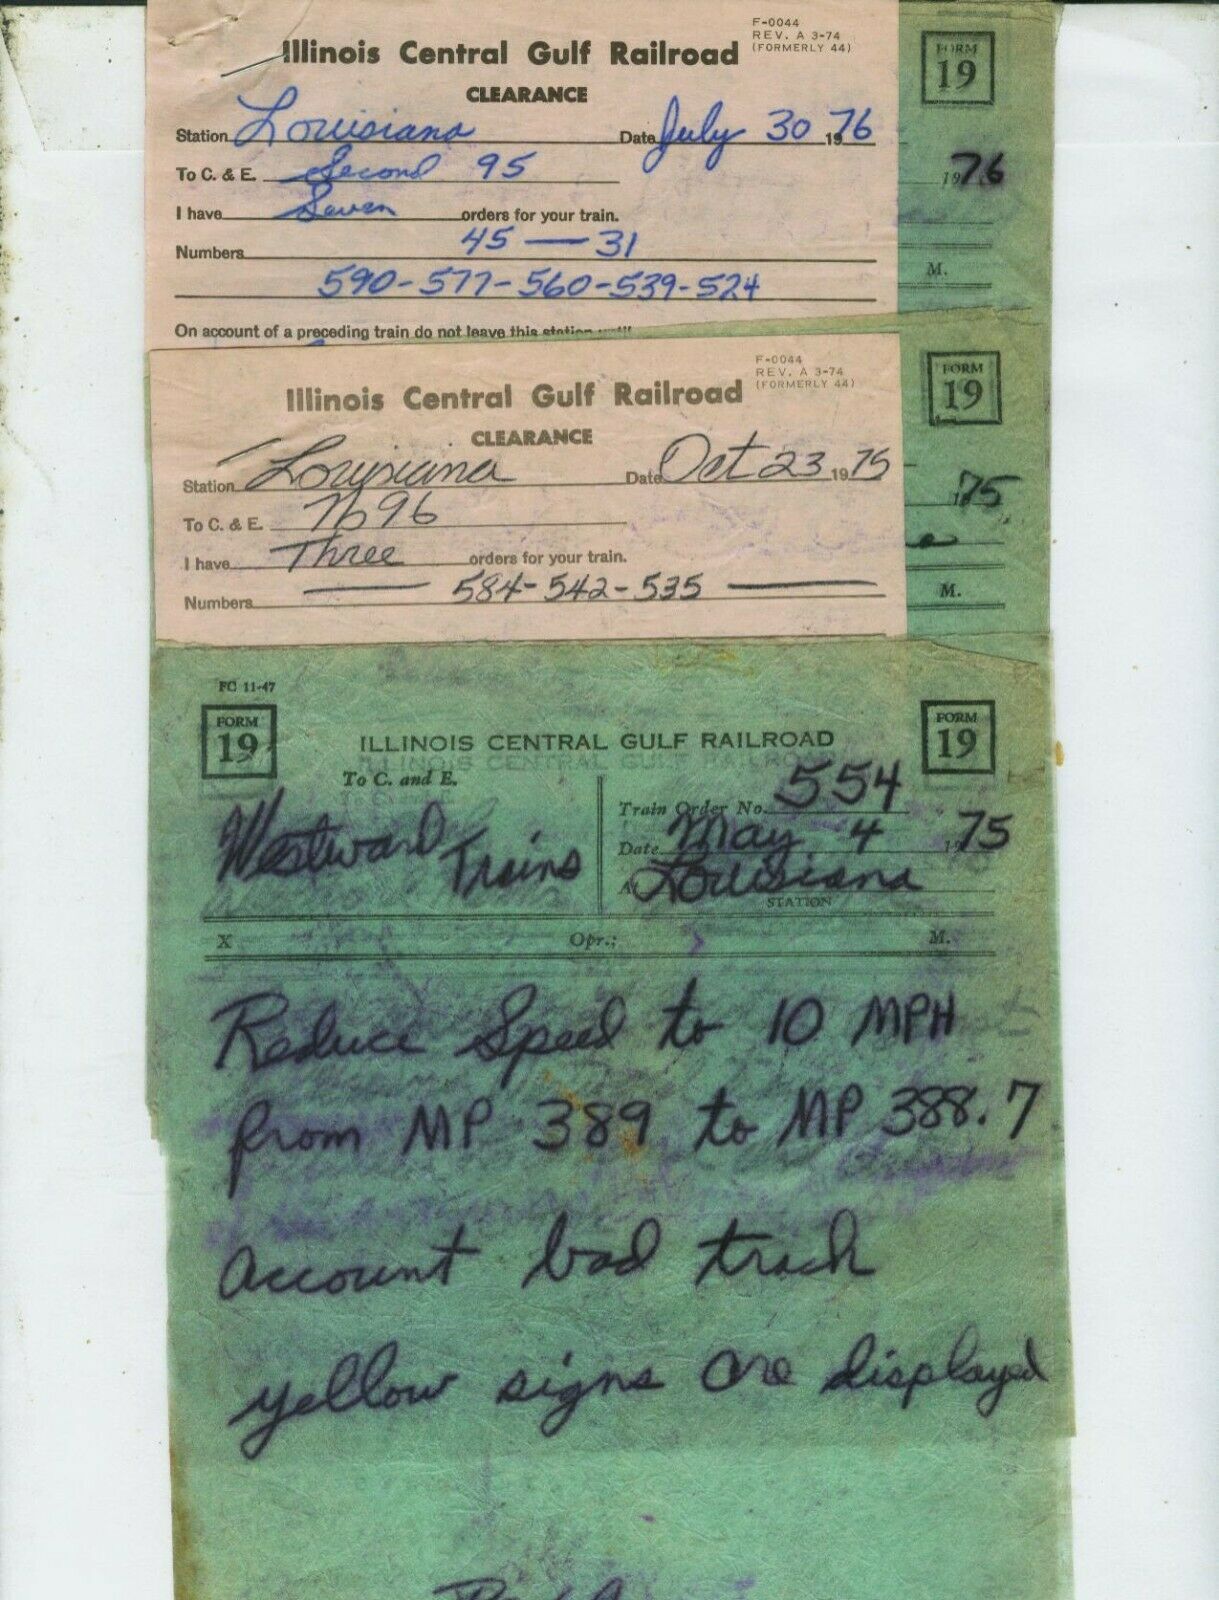 F-0044
REV. A 3-74
(FORMERLY 44)
Illinois Central Gulf Railroad
CLEARANCE
Station Louisiana Date July 30 1976
To C. & E. Second 95
I have Seven orders for your train.
Numbers 45 — 31
590-577-560-539-524
On account of a preceding train do not leave this station until
FORM
19
1976
M.
F-0044
REV. A 3-74
(FORMERLY 44)
Illinois Central Gulf Railroad
CLEARANCE
Station Louisiana Date Oct 23 1975
To C. & E. No 96
I have Three orders for your train.
Numbers — 584-542-535 —
FORM
19
75
M.
FC 11-47
FORM
19
ILLINOIS CENTRAL GULF RAILROAD
FORM
19
To C. and E.
Westward Trains
Train Order No. 554
Date May 4 1975
At Louisiana
STATION
X Opr.; M.
Reduce Speed to 10 MPH
from MP 389 to MP 388.7
account bad track
yellow signs are displayed